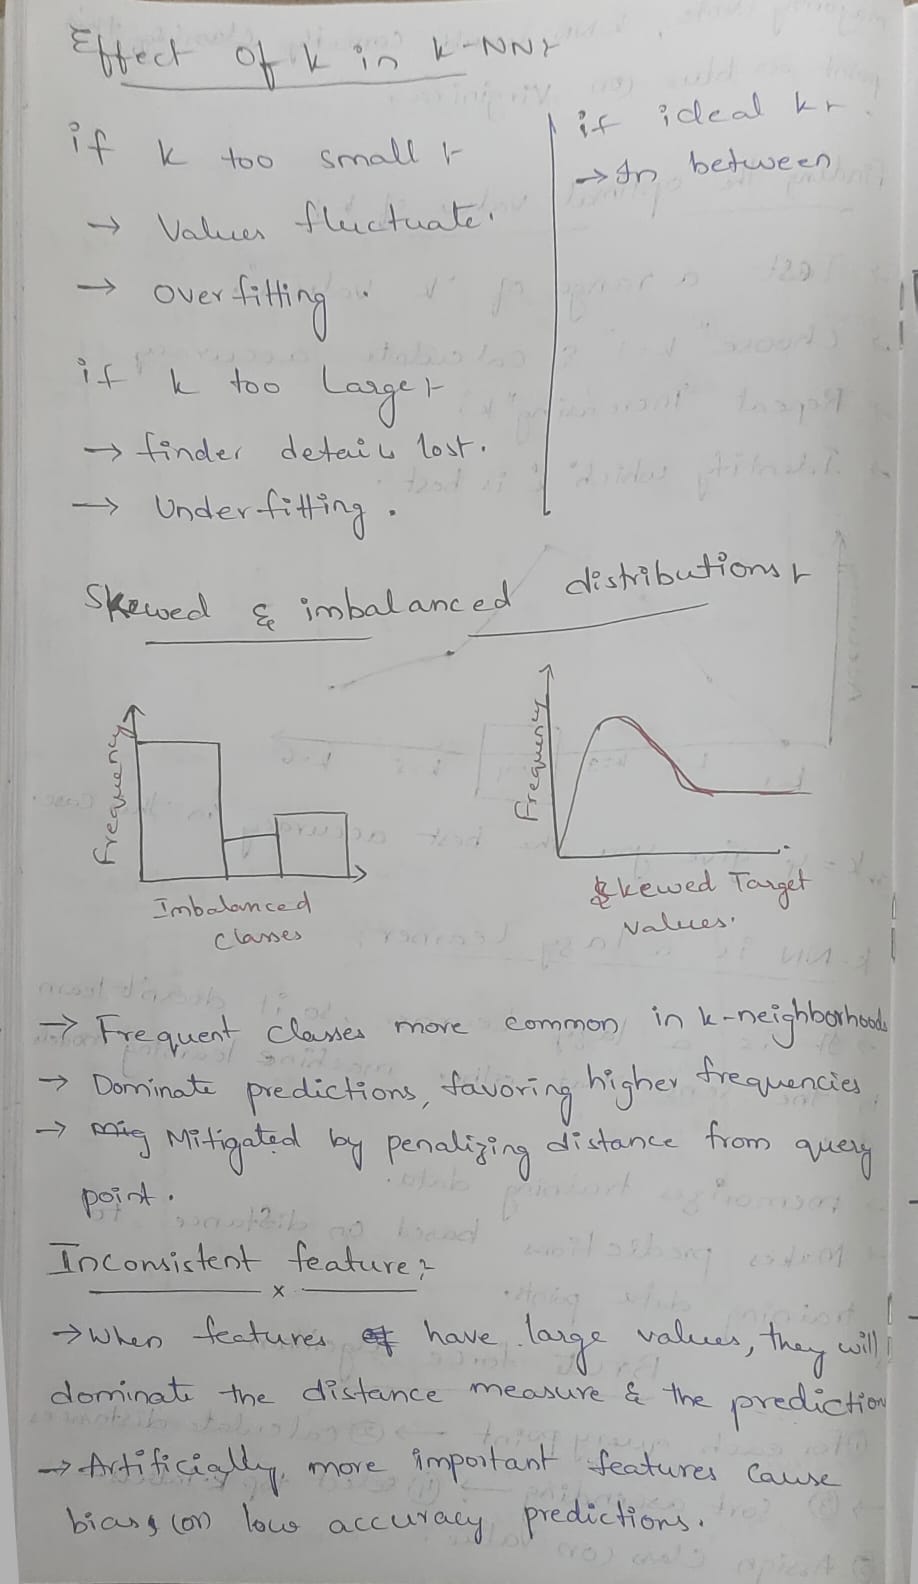 Effect of k in k-NN:-
if k too small :-
→ Values fluctuate.
→ overfitting.
if k too large :-
→ finder details lost.
→ Underfitting.
if ideal k :-
→ In between
Skewed & imbalanced distributions :-
Frequency
Imbalanced
classes
Frequency
Skewed Target
values.
→ Frequent classes more common in k-neighborhoods
→ Dominate predictions, favoring higher frequencies
→ Mitigated by penalizing distance from query
point.
Inconsistent feature :-
→ When features have large values, they will
dominate the distance measure & the prediction
→ Artificially, more important features cause
bias, (or) low accuracy predictions.